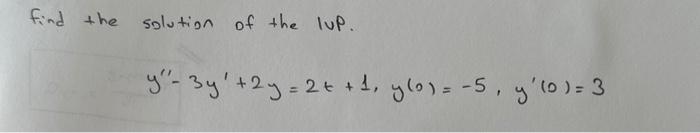 find the solution of the IUP.
y''- 3y' + 2y = 2t + 1, y(0) = -5, y'(0) = 3